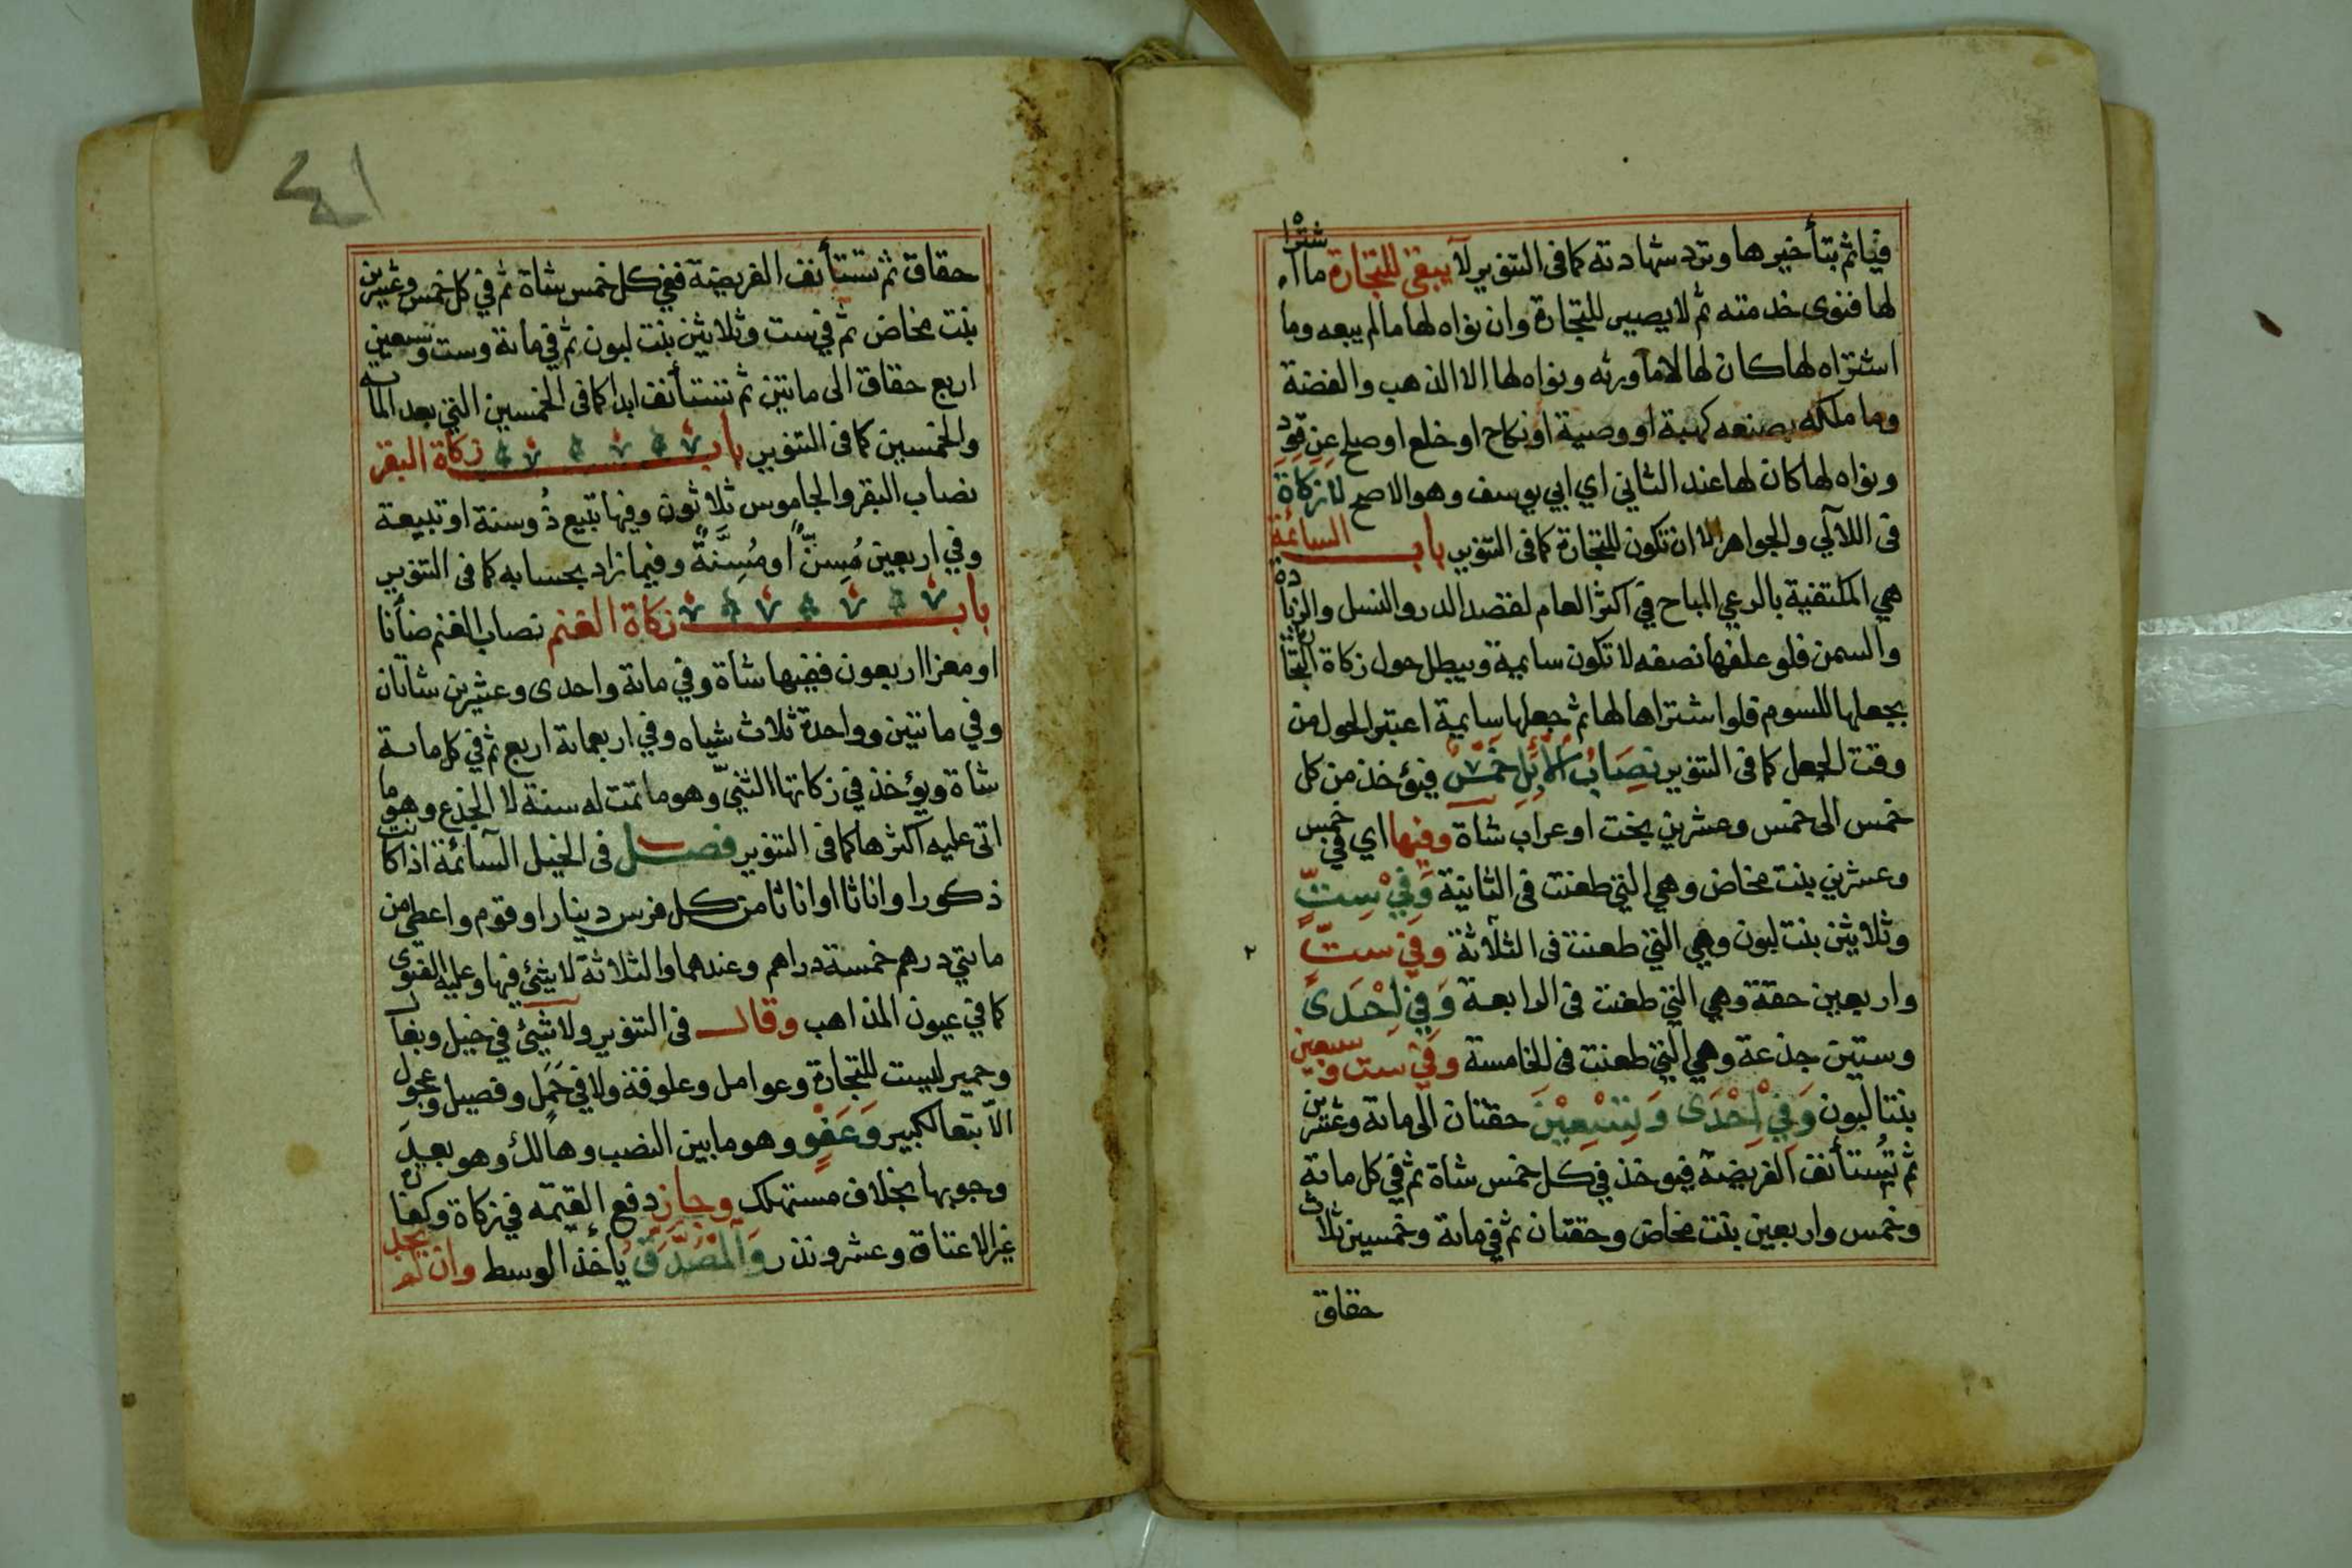 فياثم بتأخيرها وترد شهادته كما فى التنوير لا يبقى للتجارة ما اشتراه
لها فنوى خدمته ثم لا يصير للتجارة وان نواه لها ما لم يبعه وما
اشتراه لها كان لها لا ما ورثه ونواه لها الا الذهب والفضة
وما ملكه بصنعه كهبة او وصية او نكاح او خلع او صلح عن قود
ونواه لها كان لها عند الثاني اي ابي يوسف وهو الاصح لا زكاة
فى اللآلي والجواهر الا ان تكون للتجارة كما فى التنوير باب السائمة
هي المكتفية بالرعي المباح في اكثر العام لقصد الدر والنسل والزيادة
والسمن فلو علفها نصفه لا تكون سايمة ويبطل حول زكاة التجارة
بجعلها للسوم فلو اشتراها لها ثم جعلها سايمة اعتبر الحول من
وقت الجعل كما فى التنوير نِصَابُ الْإِبِلِ خَمْسٌ فيؤخذ من كل
خمس الى خمس وعشرين بخت او عراب شاة وفيها اي في خمس
وعشرين بنت مخاض وهي التي طعنت فى الثانية وَفِيْ سِتٍّ
وثلاثين بنت لبون وهي التي طعنت فى الثالثة وفي ستٍّ
واربعين حقة وهي التي طعنت فى الرابعة وَفِي اِحْدَى
وستين جذعة وهي التي طعنت فى الخامسة وفي ست وسبعين
بنتا لبون وَفِيْ اِحْدَى وَتِسْعِيْنَ حقتان الى مائة وعشرين
ثم تُستأنف الفريضة فيوخذ في كل خمس شاة ثم في كل مائة
وخمس واربعين بنت مخاض وحقتان ثم في مائة وخمسين ثلاث
حقاق
٤١
حقاق ثم تستأنف الفريضة ففي كل خمس شاة ثم في كل خمس وعشرين
بنت مخاض ثم في ست وثلاثين بنت لبون ثم في مائة وست وتسعين
اربع حقاق الى مائتين ثم تستأنف ابدا كما فى الخمسين التي بعد المائة
والخمسين كما فى التنوير باب زكاة البقر
نصاب البقر والجاموس ثلاثون وفيها تبيع ذُو سنة او تبيعة
وفي اربعين مُسِنٌّ او مُسِنَّةٌ وفيما زاد بحسابه كما فى التنوير
باب زكاة الغنم نصاب الغنم ضأنا
او معزا اربعون ففيها شاة وفي مائة واحدى وعشرين شاتان
وفي مائتين وواحدة ثلاث شياه وفي اربعمائة اربع ثم في كل مائة
شاة ويؤخذ في زكاتها الثنيّ وهو ما تمت له سنة لا الجذع وهو ما
اتى عليه اكثرها كما فى التنوير فصل فى الخيل السآئمة اذا كانت
ذكورا واناثا او اناثا من كل فرس دينار او قوم واعطى من
مايتي درهم خمسة دراهم وعندهما والثلاثة لا شيئ فيها وعليه الفتوى
كما في عيون المذاهب وقال فى التنوير ولا شيئ في خيل وبغال
وحمير ليست للتجارة وعوامل وعلوفة ولا في حَمَل وفصيل وعجول
الّا تبعا لكبير وَعَفْوٍ وهو ما بين النصب وهالك وهو بعيد
وجوبها بخلاف مستهلك وجاز دفع القيمة في زكاة وكفارة
غير الاعتاق وعشر ونذر وَالْمُصَدِّقُ ياخذ الوسط وان لم يجد